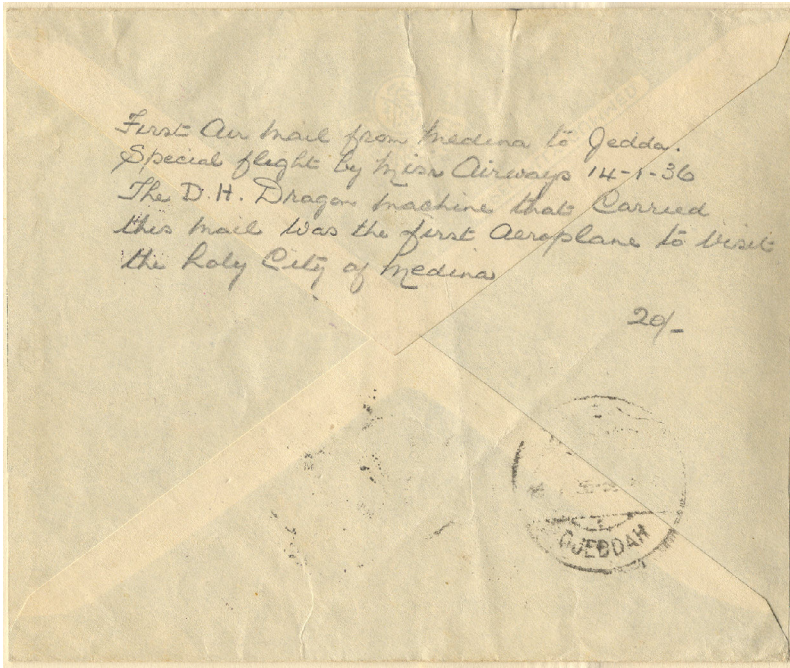 First Air Mail from Medina to Jedda.
Special flight by Misr Airways 14-1-36
The D.H. Dragon Machine that Carried
this Mail was the first Aeroplane to Visit
the Holy City of Medina
20/-
DJEDDAH